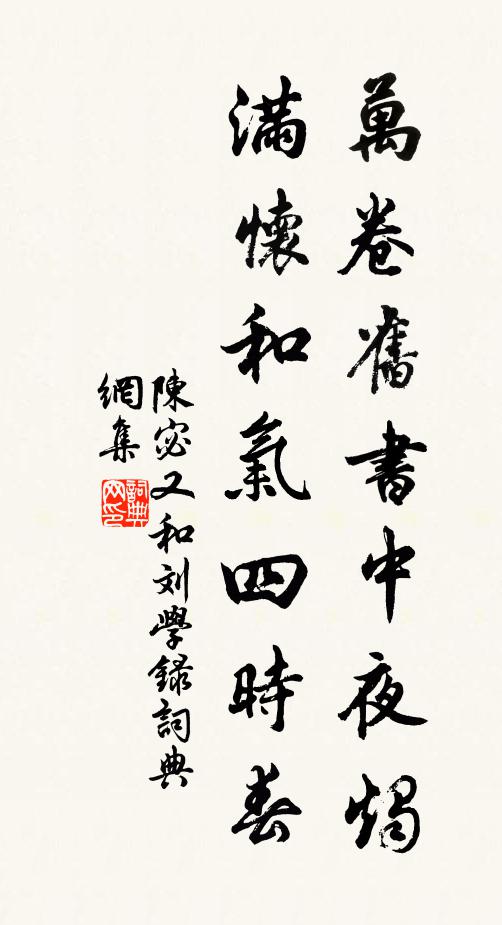 萬卷舊書中夜燭
滿懷和氣四時春
陳宓又和刘學錄詞典
網集
詞典网印